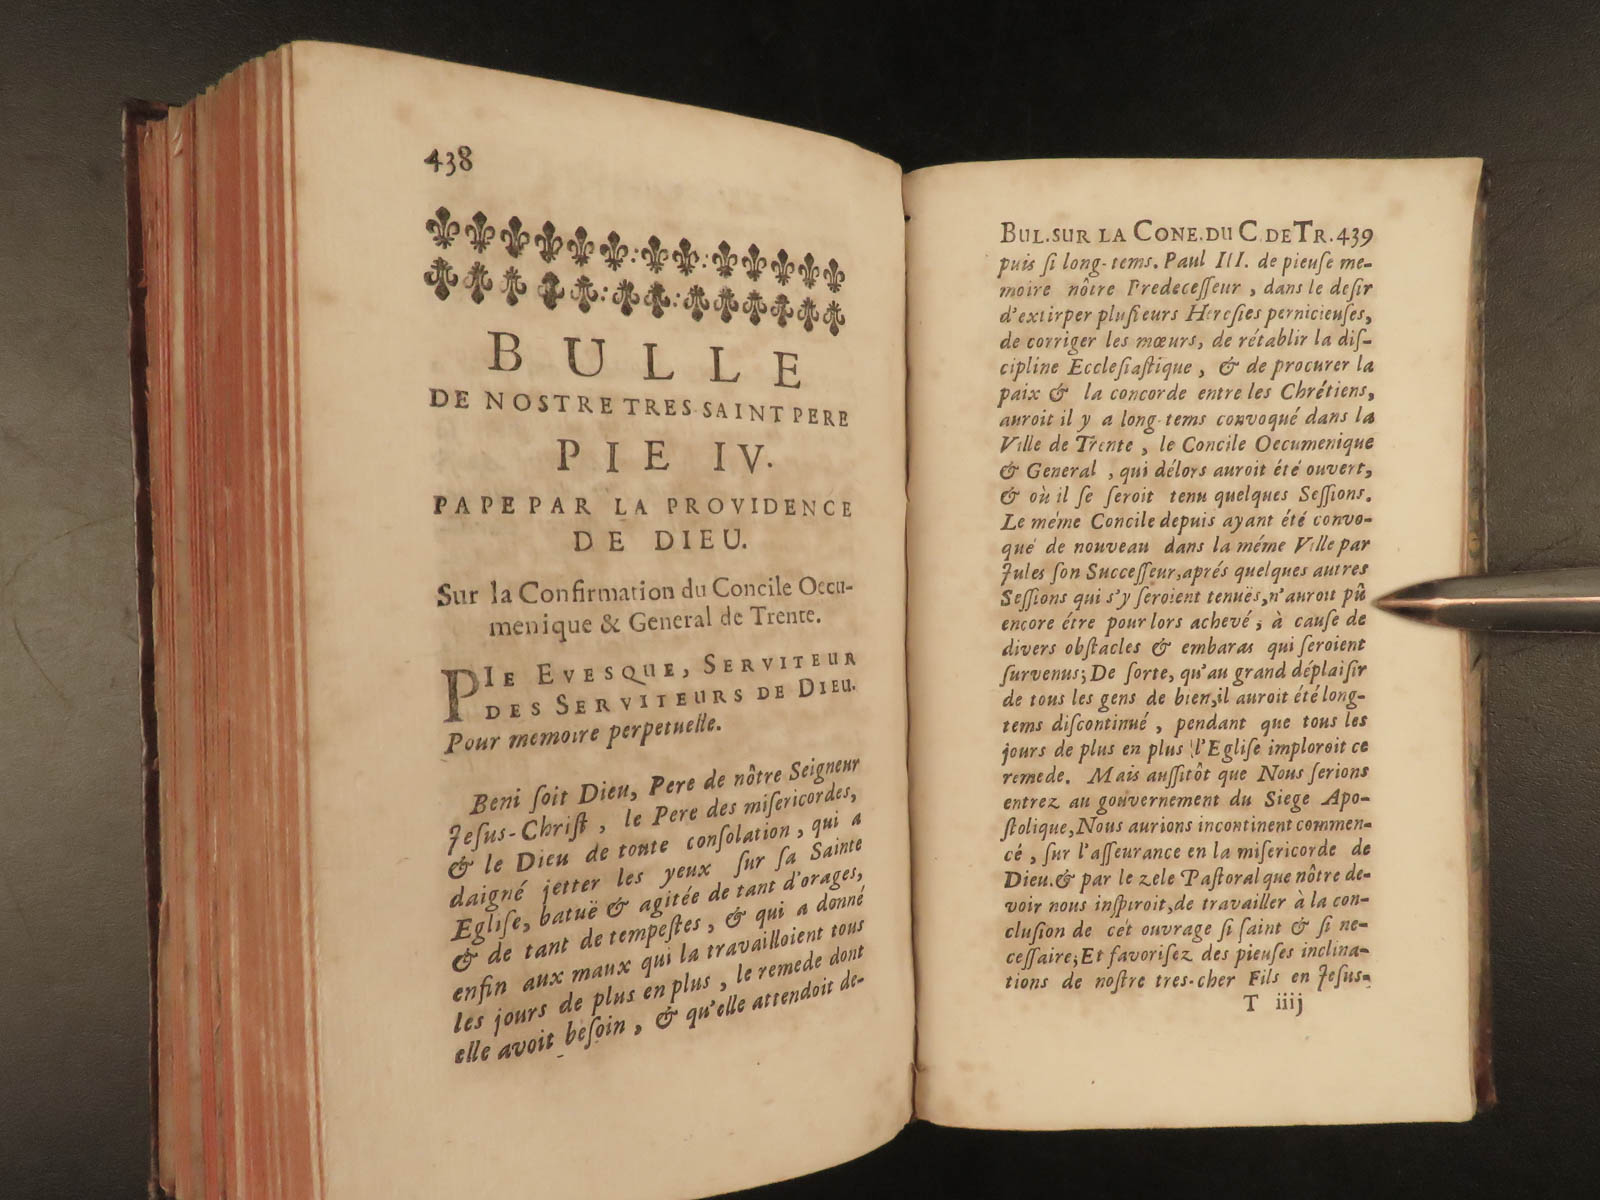 438
BULLE
DE NOSTRE TRES-SAINT PERE
PIE IV.
PAPE PAR LA PROVIDENCE
DE DIEU.
Sur la Confirmation du Concile Oecu-
menique & General de Trente.
PIE EVESQUE, SERVITEUR
DES SERVITEURS DE DIEU.
Pour memoire perpetuelle.
Beni ſoit Dieu, Pere de nôtre Seigneur
Jeſus-Chriſt, le Pere des miſericordes,
& le Dieu de toute conſolation, qui a
daigné jetter les yeux ſur ſa Sainte
Egliſe, batuë & agitée de tant d'orages,
& de tant de tempeſtes, & qui a donné
enfin aux maux qui la travailloient tous
les jours de plus en plus, le remede dont
elle avoit beſoin, & qu'elle attendoit de-
BUL. SUR LA CONE. DU C. DE TR. 439
puis ſi long-tems. Paul III. de pieuſe me-
moire nôtre Predeceſſeur, dans le deſir
d'extirper pluſieurs Hereſies pernicieuſes,
de corriger les mœurs, de rétablir la diſ-
cipline Eccleſiaſtique, & de procurer la
paix & la concorde entre les Chrétiens,
auroit il y a long-tems convoqué dans la
Ville de Trente, le Concile Oecumenique
& General, qui délors auroit été ouvert,
& où il ſe ſeroit tenu quelques Seſſions.
Le méme Concile depuis ayant été convo-
qué de nouveau dans la méme Ville par
Jules ſon Succeſſeur, aprés quelques autres
Seſſions qui s'y ſeroient tenuës, n'auroit pû
encore étre pour lors achevé; à cauſe de
divers obſtacles & embaras qui ſeroient
ſurvenus; De ſorte, qu'au grand déplaiſir
de tous les gens de bien, il auroit été long-
tems diſcontinué, pendant que tous les
jours de plus en plus l'Egliſe imploroit ce
remede. Mais auſſitôt que Nous ſerions
entrez au gouvernement du Siege Apo-
ſtolique, Nous aurions incontinent commen-
cé, ſur l'aſſeurance en la miſericorde de
Dieu. & par le zele Paſtoral que nôtre de-
voir nous inſpiroit, de travailler à la con-
cluſion de cét ouvrage ſi ſaint & ſi ne-
ceſſaire; Et favoriſez des pieuſes inclina-
tions de noſtre tres-cher Fils en Jeſus-
T iiij